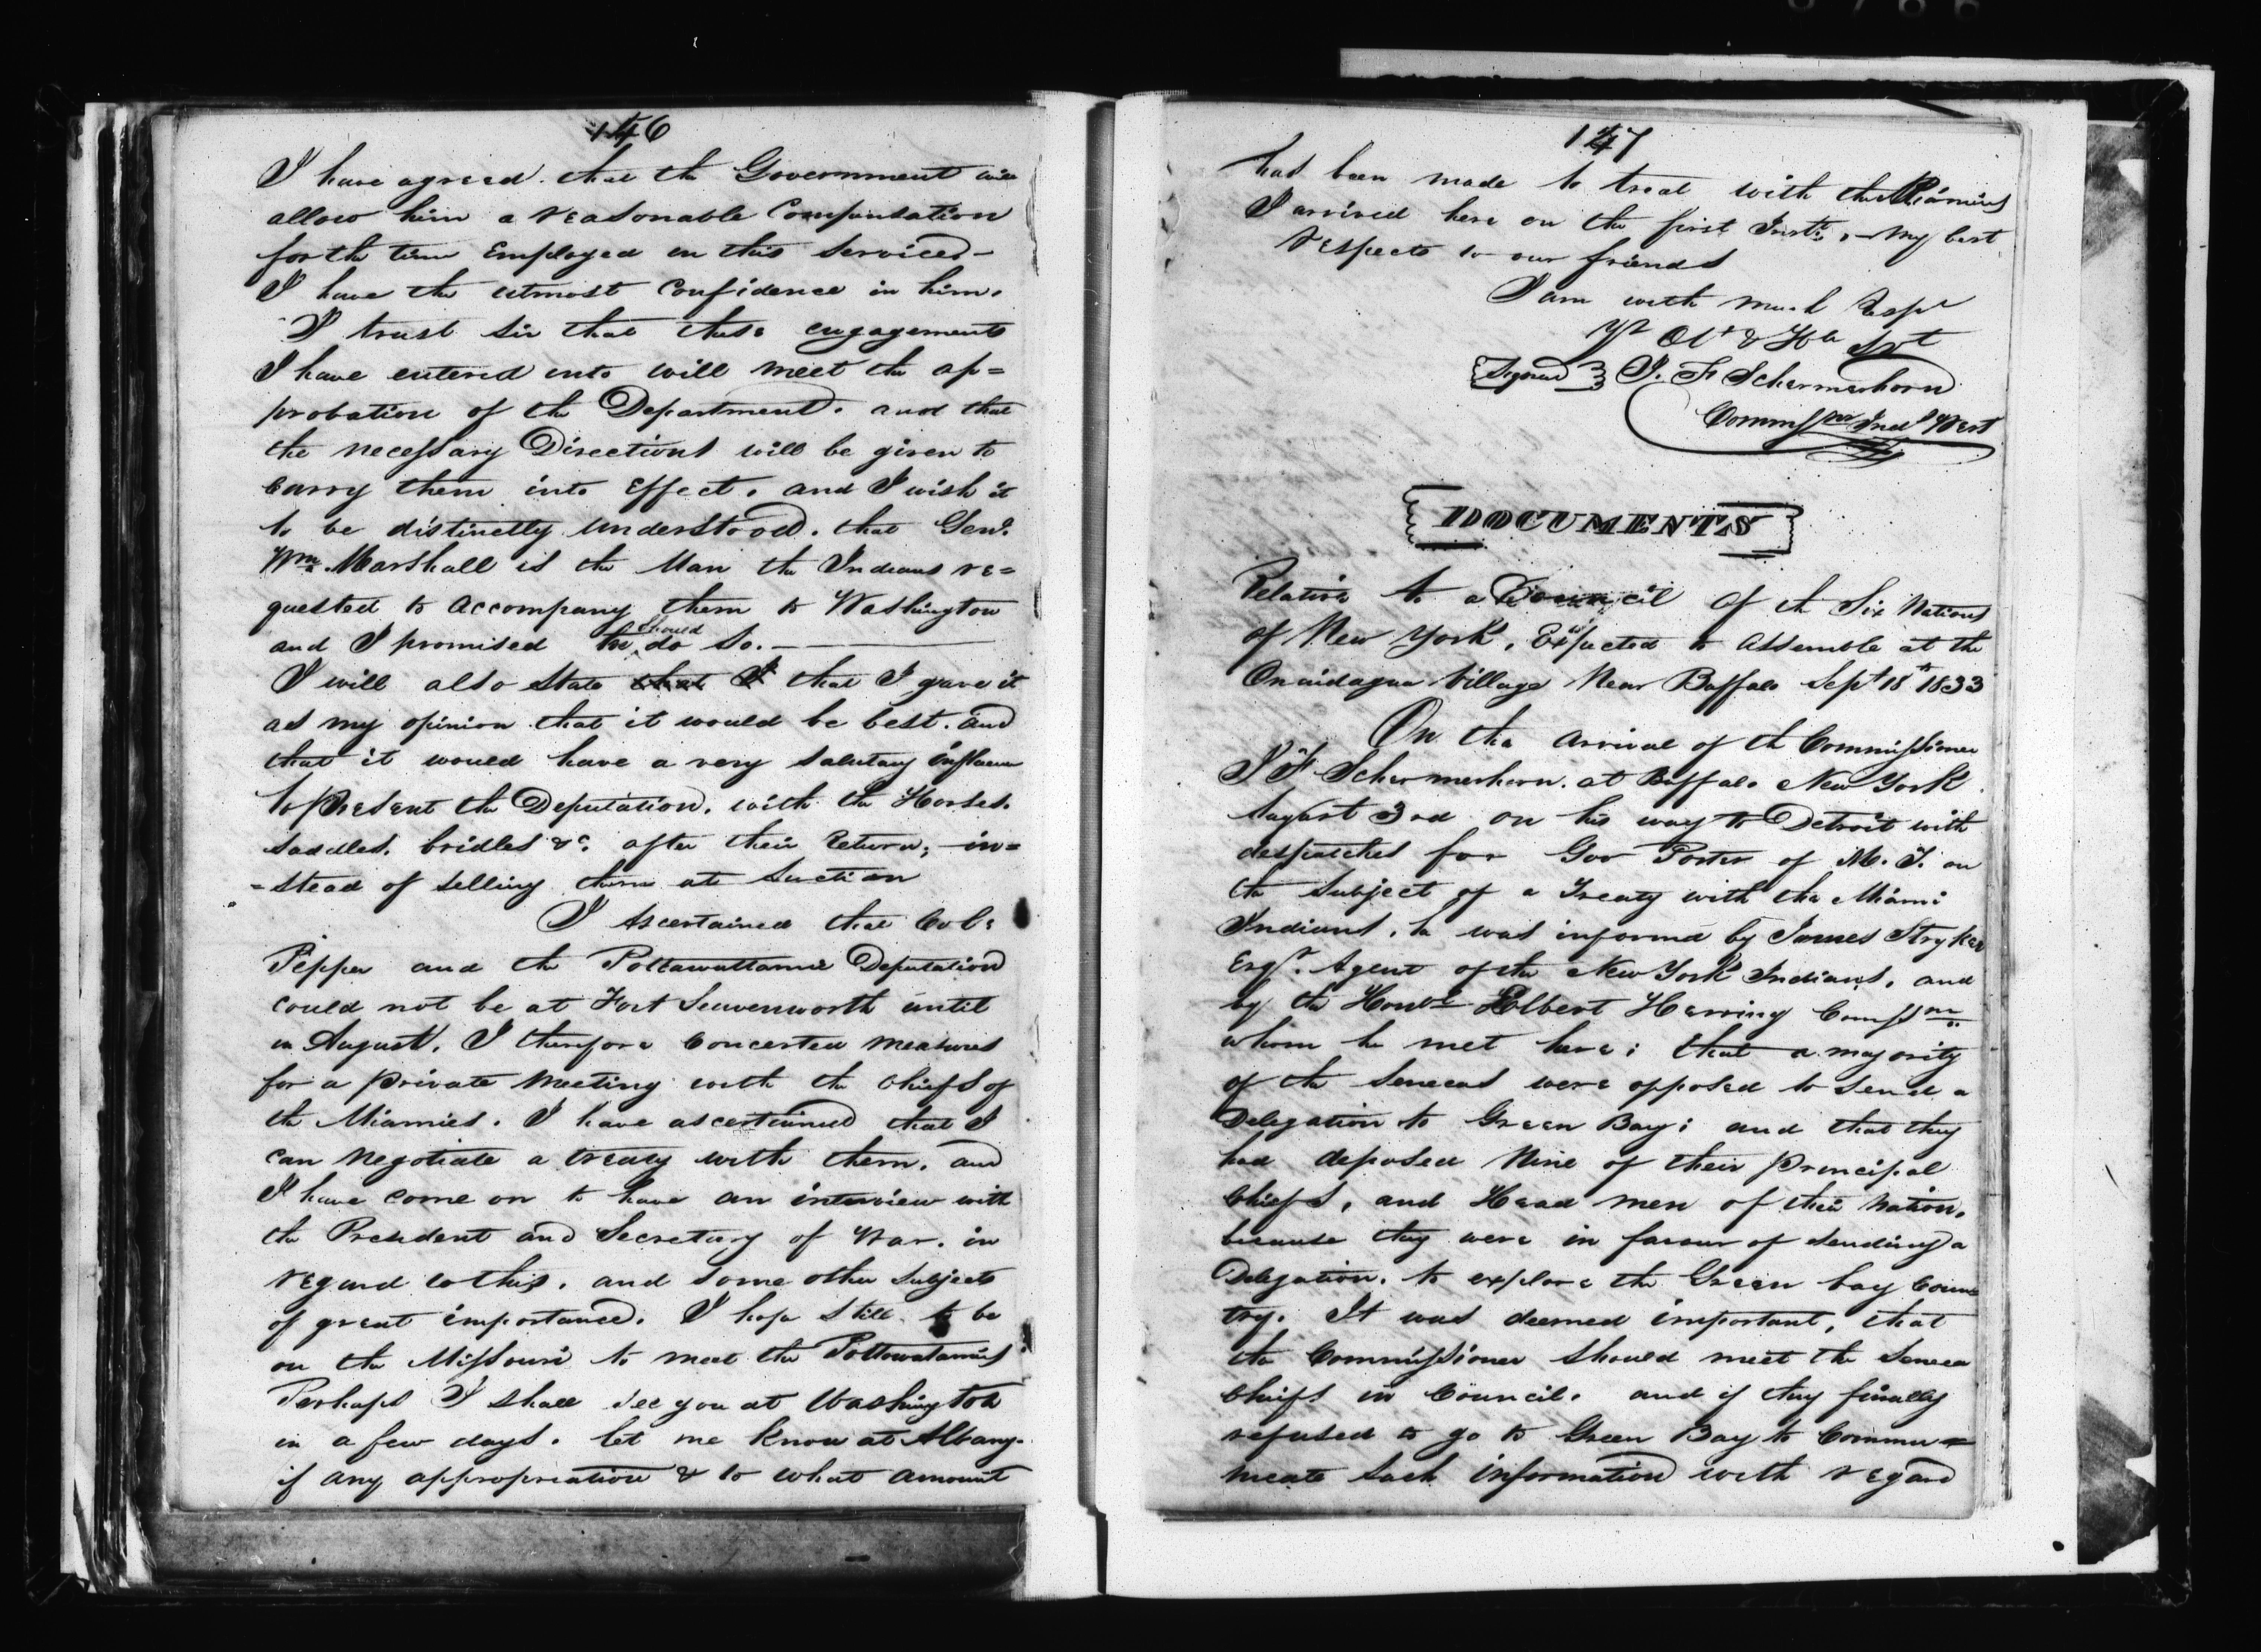 146
I have agreed that the Government will
allow him a reasonable Compensation
for the time Employed in this service.-
I have the utmost Confidence in him.
I trust sir that these engagements
I have entered into will meet the ap=
probation of the Department. and that
the necessary Directions will be given to
Carry them into Effect. and I wish it
to be distinctly understood. that Genl.
Wm. Marshall is the Man the Indians re=
quested to accompany them to Washington
and I promised he should do so.-
I will also State that I that I gave it
as my opinion that it would be best. and
that it would have a very salutary influence
to present the Deputation. with the Horses.
saddles. bridles &c. after their return; in=
=stead of selling them at auction
I ascertained that Col:
Pepper and the Pottawattamie Deputation
could not be at Fort Leavenworth until
in August. I therefore Concerted measures
for a private meeting with the Chiefs of
the Miamies. I have ascertained that I
can negotiate a treaty with them. and
I have come on to have an interview with
the President and Secretary of War. in
regard to this. and some other subjects
of great importance. I hope still to be
on the Missouri to meet the Pottowatamies
Perhaps I shall see you at Washington
in a few days. let me know at Albany.
if any appropriation & to what amount
147
has been made to treat with the Miamies
I arrived here on the first Inst. - My best
respects to our friends
I am with much Respt
Yr Obt & Hu Svt
Signed J. F Schermerhorn
Commissr Inds West
DOCUMENTS
Relative to a Council of the Six Nations
of New York, Expected to Assemble at the
Onondagua Village Near Buffalo Sept 18th 1833
On the arrival of the Commissioner
J F Schermerhorn. at Buffalo New York.
August 3rd on his way to Detroit with
despatches for Gov Porter of M. T. on
the Subject of a Treaty with the Miami
Indians. he was informed by James Stryker
Esqr. Agent of the New York Indians, and
by the Honble Elbert Herring Comssr
whom he met here; that a majority
of the Senecas were opposed to send a
Delegation to Green Bay; and that they
had deposed Nine of their Principal
Chiefs, and Head men of their Nation.
because they were in favour of sending a
Delegation. to explore the Green bay Coun=
try. It was deemed important, that
the Commissioner should meet the Seneca
Chiefs in Council. and if they finally
refused to go to Green Bay to Commu=
nicate such information with regard